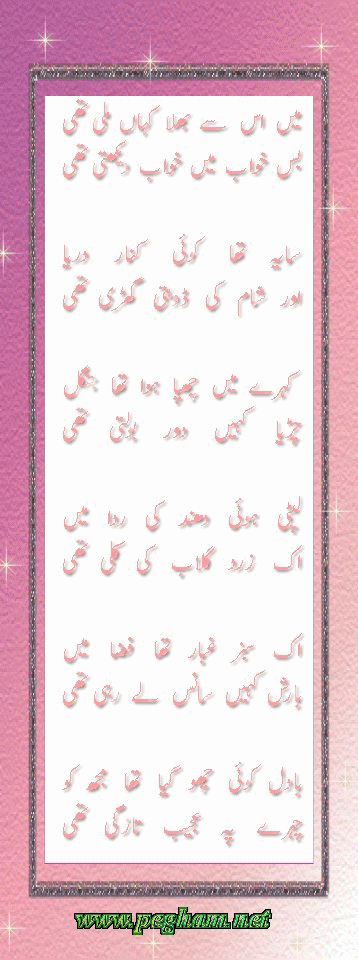 میں اس سے بھلا کہاں ملی تھی
بس خواب میں خواب دیکھتی تھی
سایہ تھا کوئی کنار دریا
اور شام کی ڈوبتی گھڑی تھی
کہرے میں چھپا ہوا تھا جنگل
چڑیا کہیں دور بولتی تھی
لپٹی ہوئی دھند کی ردا میں
اک زرد گلاب کی کلی تھی
اک سبز غبار تھا فضا میں
بارش کہیں سانس لے رہی تھی
بادل کوئی چھو گیا تھا مجھ کو
چہرے پہ عجیب تازگی تھی
www.pegham.net